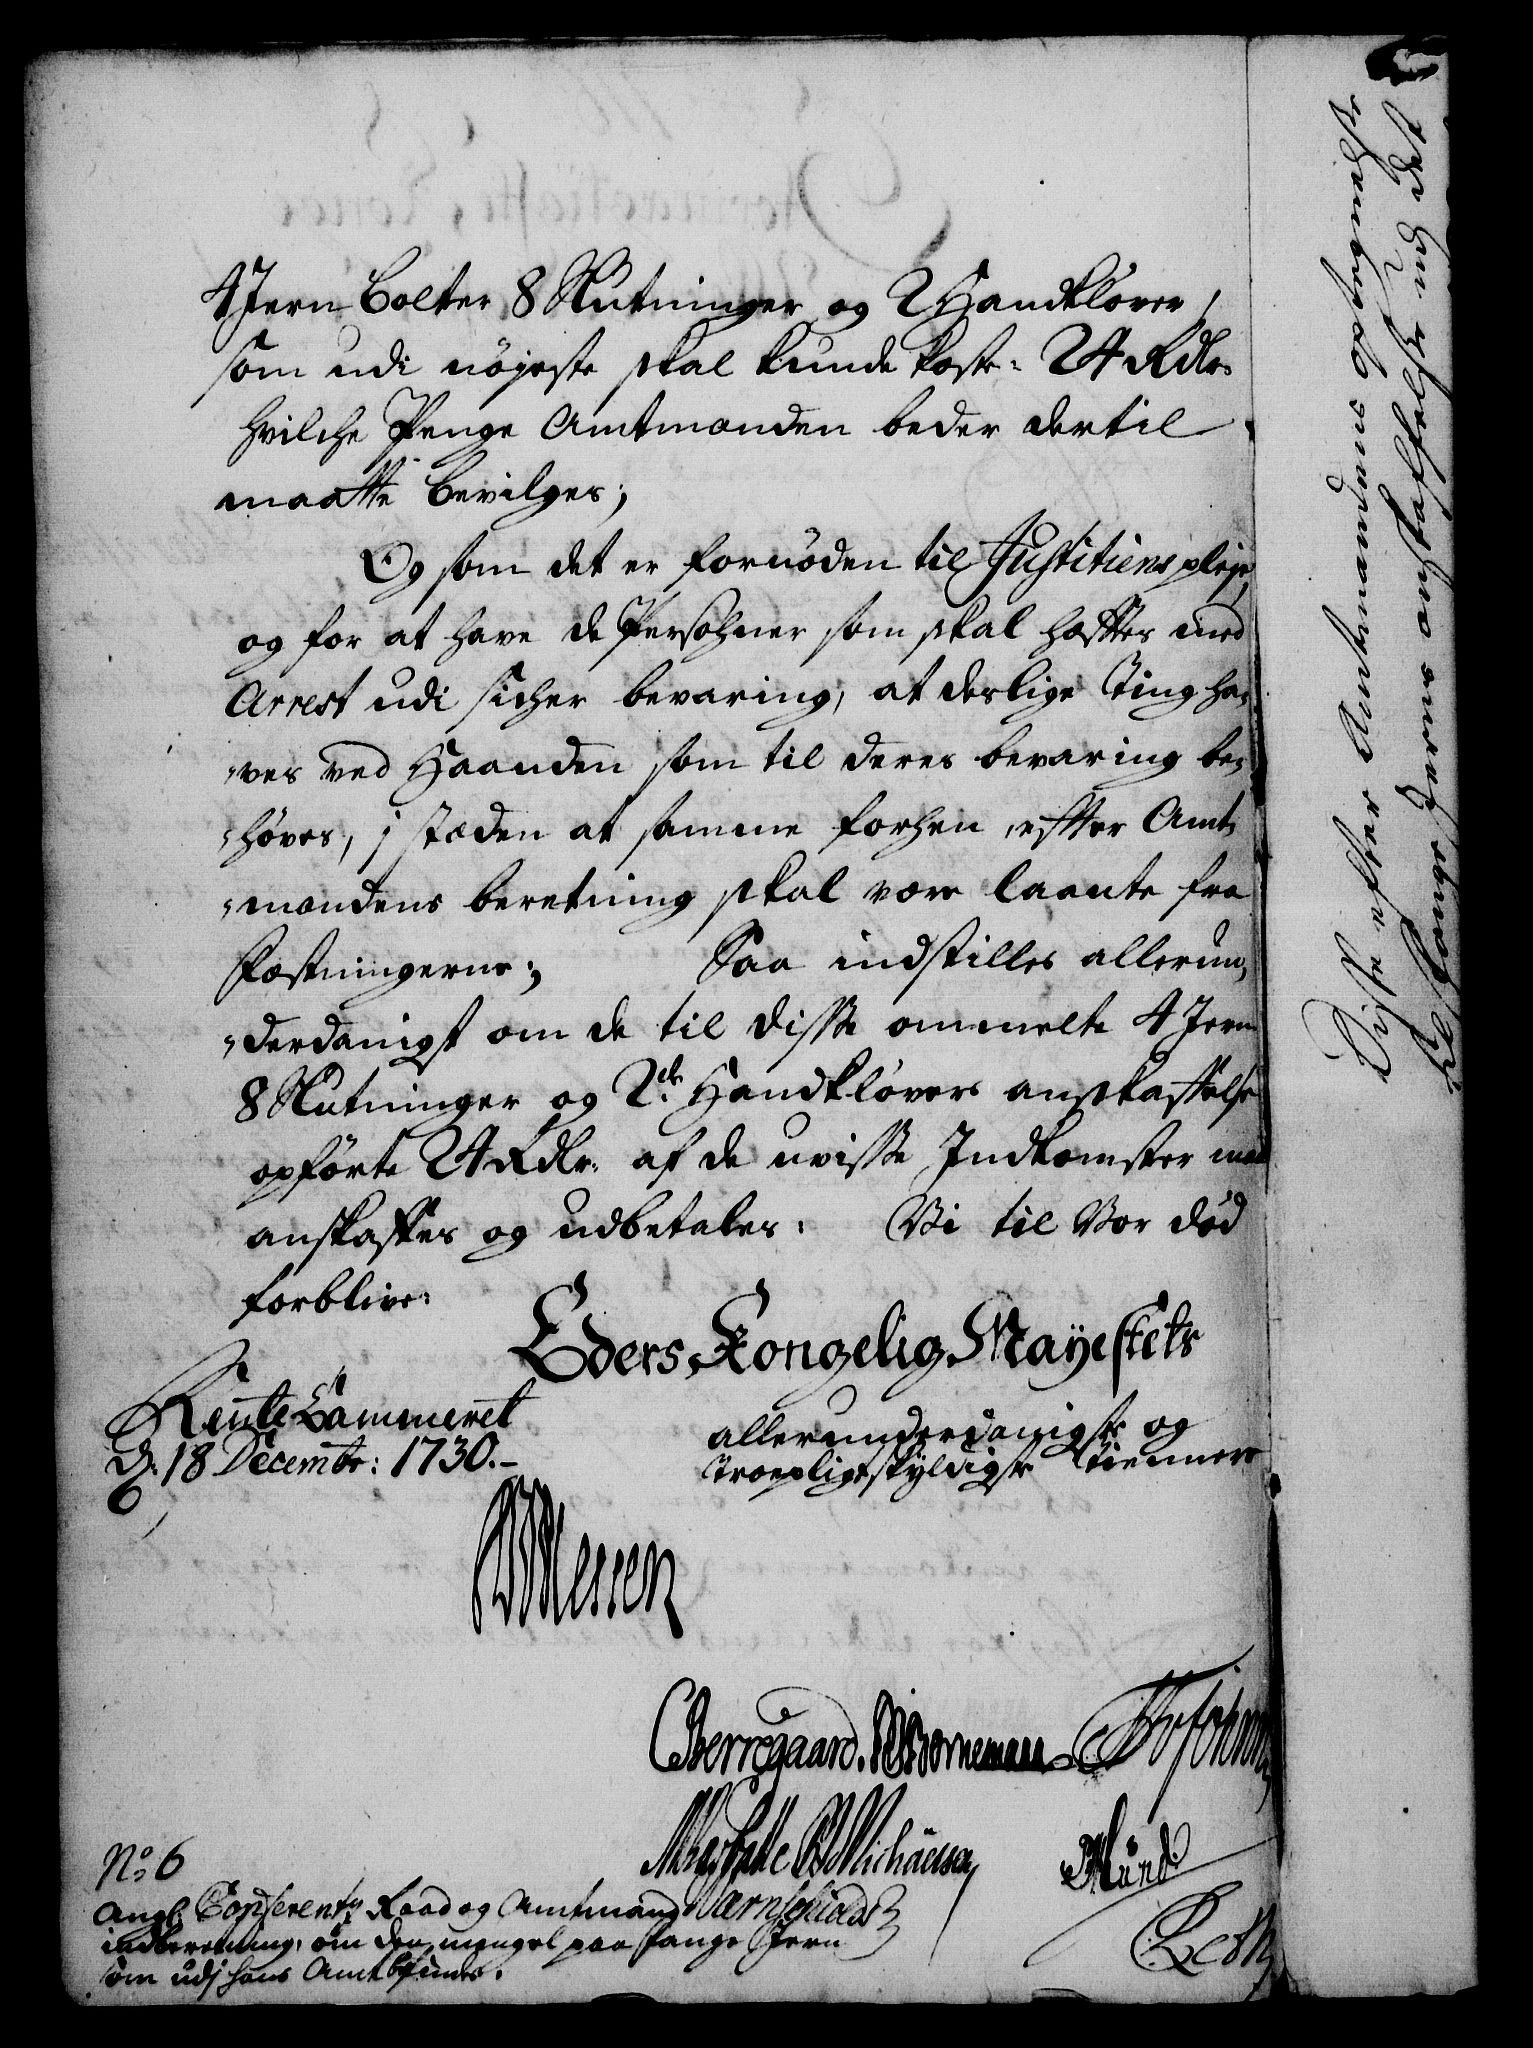 4 Jern Bolter 8 Slutninger og 2 Handklover,
som udi nøyeste skal kunde koste: 24 Rdlr:
hvilche Penge Amtmanden beder dertil
maatte bevilges;
Og som det er fornøden til Justitiens pleje,
og for at have de Persohner som skal hæfftes med
Arrest udi sicher bevaring, at deslige Ting ha-
ves ved Haanden som til deres bevaring be-
høves, j stæden at samme forhen, effter Amt-
mandens beretning skal være laante fra
Fæstningerne; Saa indstilles allerun-
derdanigst om de til disse ommelte 4 Jern
8 Slutninger og 2de Handklovers anskaffelse
opførte 24 Rdlr: af de uvisse Indkomster maa
anskaffes og udbetales: Vi til Vor død
forblive:
Eders Kongelig Mayestets
allerunderdanigste og
Troepligtskyldigste Tiennere
Rente Cammeret
d: 18 Decembr: 1730.-
Berregaard. Bornemann
Michaelsen
Mund
No 6
Angl: Conference Raad og Amtmand Wærnschiolds
indberetning, om den mangel paa fange Jern
som udj hans Amt befindes.
Disse efter Amtmandens optegnelse
fange Jerns anskaffelse ud det